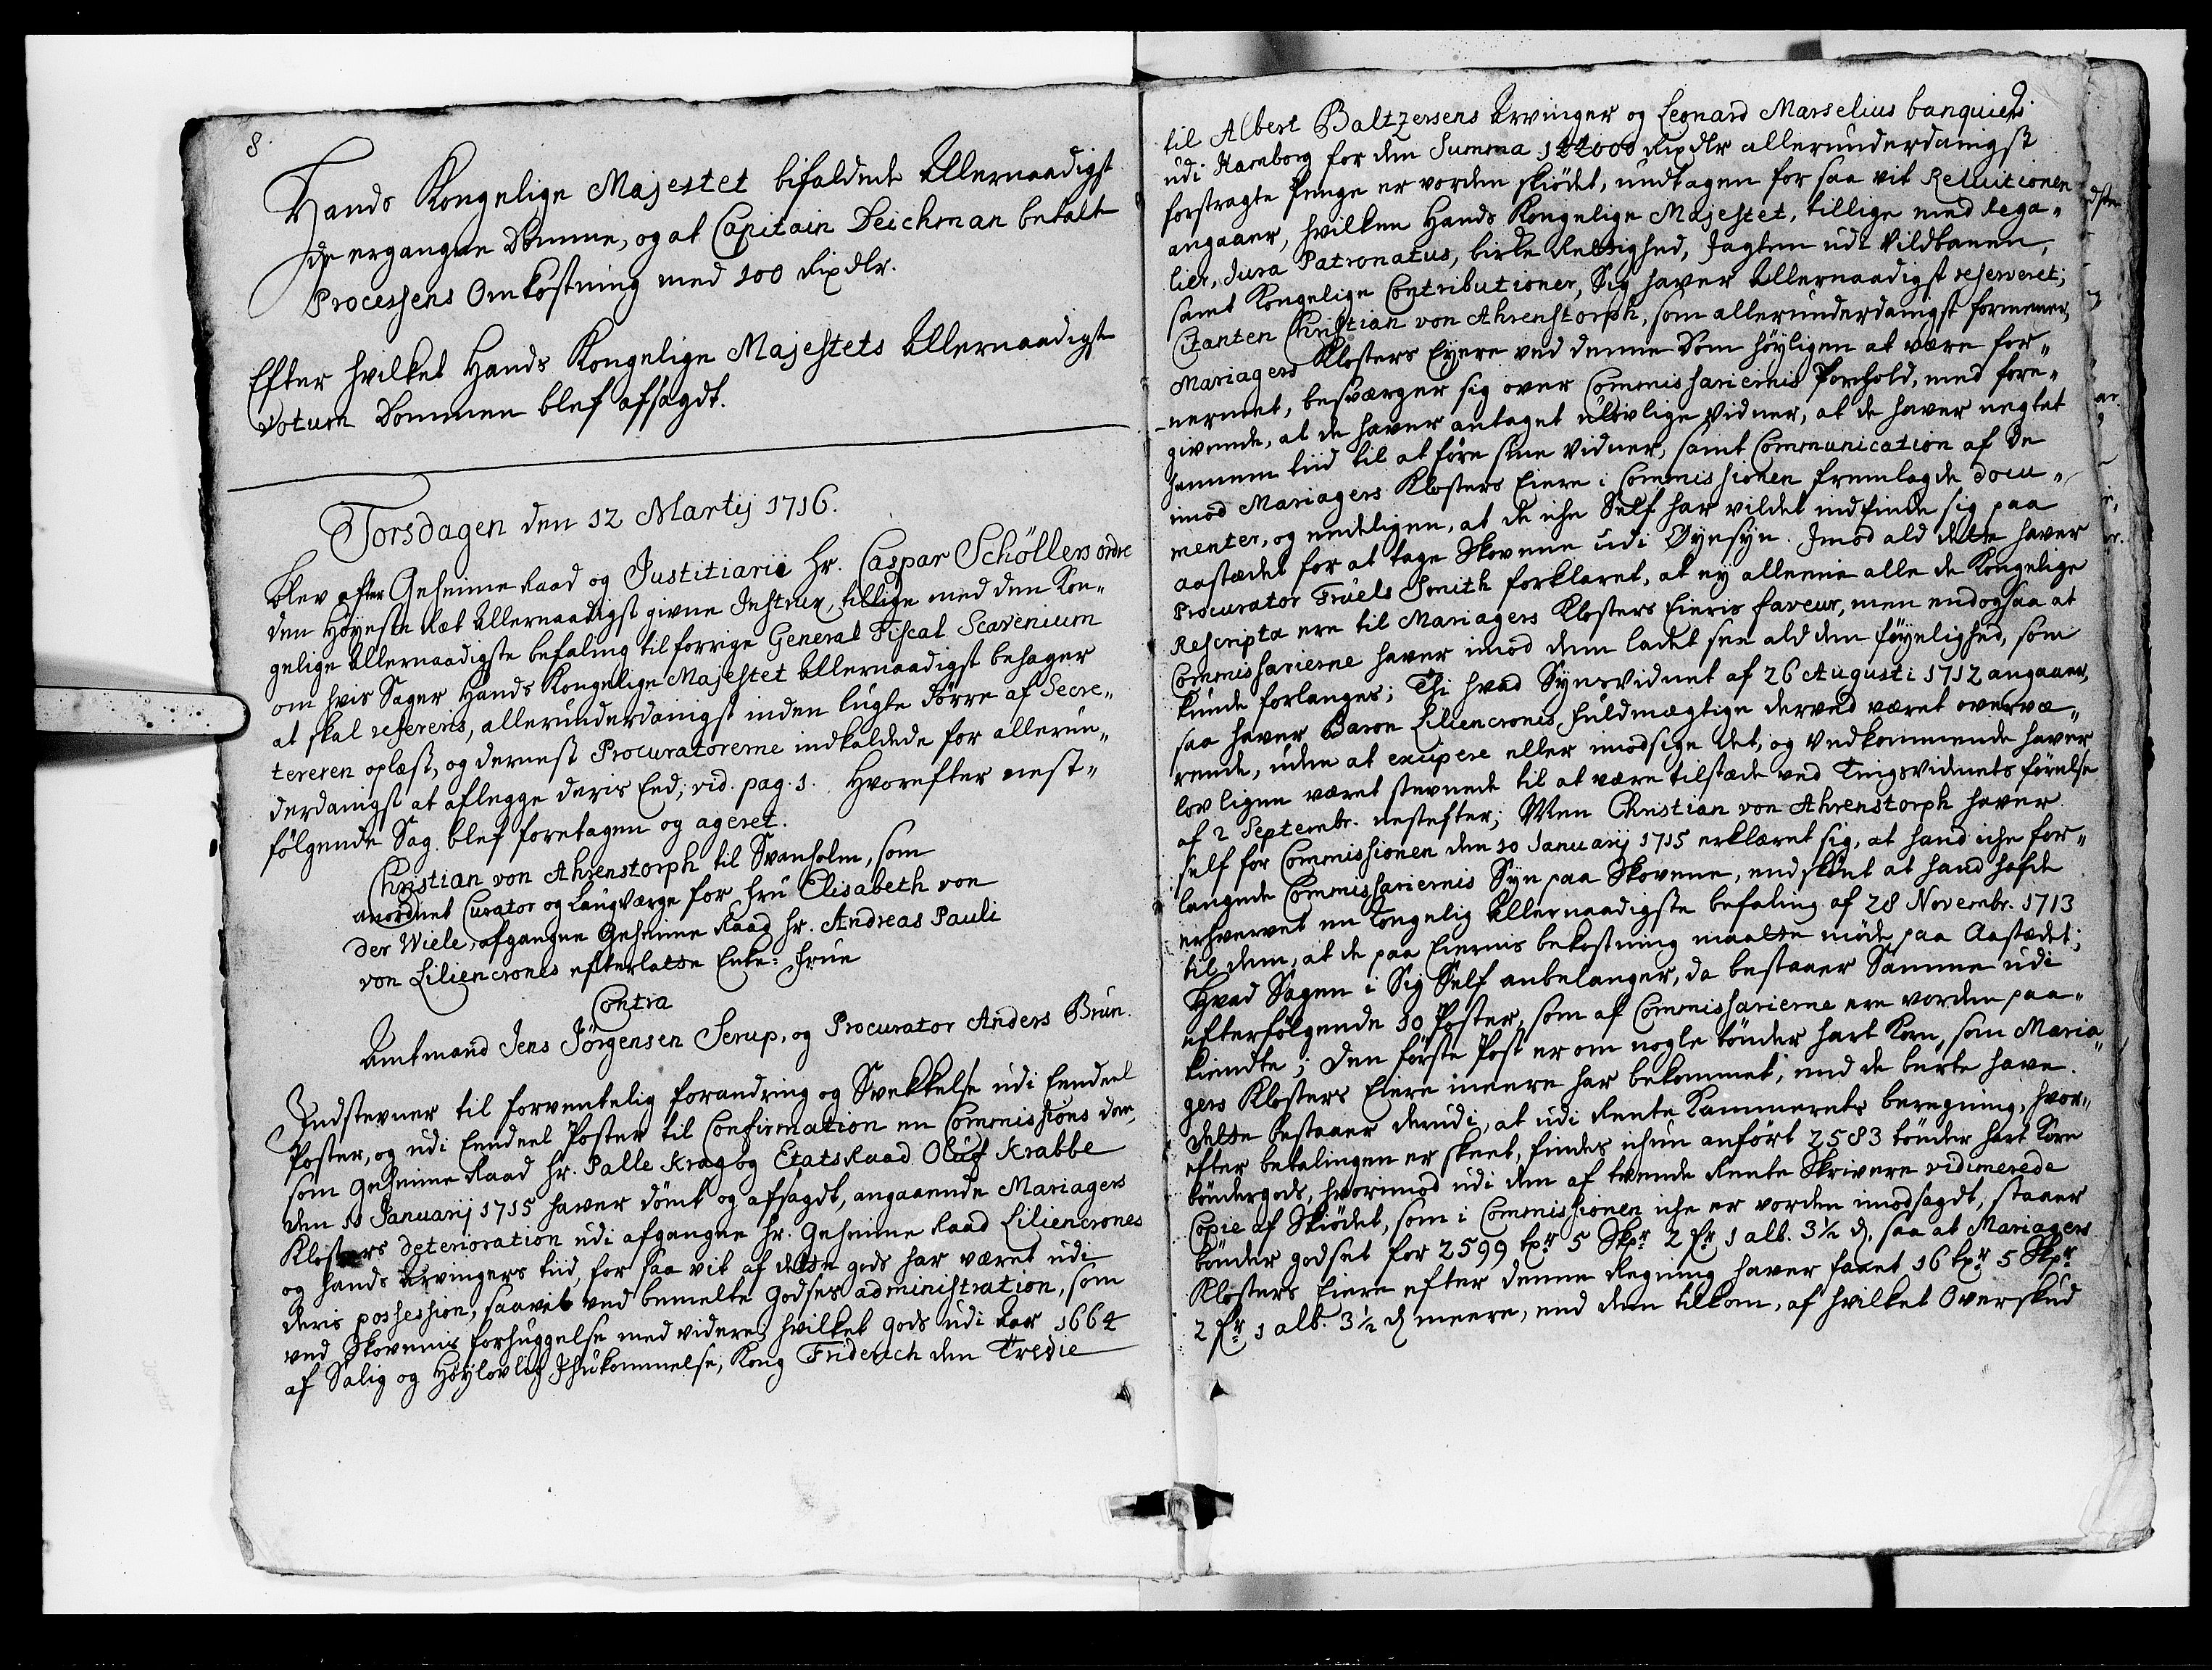 8.
Hands Kongelige Majestet bifaldede Allernaadigst
de ergangne Domme, og at Capitain Deichman betalt
Processens Omkostning med 100 Rixdlr.
Efter hvilket Hands Kongelige Majestets Allernaadigste
votum Dommen blef afsagdt.
Torsdagen den 12 Martij 1716.
Blev after Geheime Raad og Justitiarii Hr. Caspar Schöllers ordre
den Høyeste Ræt Allernaadigst givne Instrux, tillige med den Kon„
gelige Allernaadigste befaling til forrige General Fiscal Scavenium
om hvis Sager Hands Kongelige Majestet Allernaadigst behager
at skal refereris, allerunderdanigst inden lugte Dörre af Secre„
tereren oplæst, og dernest Procuratorerne indkaldede for allerun„
derdanigst at aflegge deris Eed, vid. pag. 1. Hvorefter nest„
følgende Sag blef foretagen og ageret.
Christian von Ahrenstorph til Svanholm, som
anordnet Curator og Laugværge for Fru Elisabeth von
der Wiele, afgangne Geheime Raad Hr. Andreas Pauli
von Liliencrones efterlatte Enke-Frue
Contra
Amtmand Jens Jörgensen Serup, og Procurator Anders Brun.
Indstevner til forventelig forandring og Svekkelse udi Eendeel
Poster, og udi Eendeel Poster til Confirmation en Commissions dom,
som Geheime Raad Hr. Palle Krag og Etats Raad Oluf Krabbe
den 11 Januarij 1715 haver dömt og afsagdt, angaaende Mariagers
Klosters deterioration udi afgangne Hr. Geheime Raad Liliencrones
og hands Arvingers tiid, for saa vit af dette gods har været udi
deris possession, saavel ved bemelte Godses administration, som
ved Skovenis forhuggelse med videre, hvilket gods udi Aar 1664
af Salig og Höylovlig Ihukommelse, Kong Friderich den Tredie
9.
til Albert Baltzersens Arvinger og Leonard Marselius banquier
udi Hamborg for den Summa 144000 Rixdlr allerunderdanigst
forstragte Penge er vorden skiödet, undtagen for saa vit Reluitionen
angaaer, hvilken Hands Kongelige Majestet, tillige med Rega„
lier, Jura Patronatus, birke Rettighed, Jagten udi Vildbanen,
samt Kongelige Contributioner, Sig haver Allernaadigst reserveret;
Citanten Christian von Ahrenstorph, som allerunderdanigst formener,
Mariagers Klosters Eyere ved denne Dom höyligen at være for„
nermet, besværger sig over Commissariernis Forhold, med fore„
givende, at de haver antaget ulovlige Vidner, at de haver negtet
hannem tiid til at före sine Vidner, samt Communication af de
imod Mariagers Klosters Eiere i Commissionen fremlagde docu„
menter, og endeligen, at de iche Self har vildet indfinde sig paa
aastædet for at tage Skovene udi Øyesyn. Imod ald dette haver
Procurator Truels Smith forklaret, at ey alleene alle de Kongelige
Rescripta ere til Mariagers Klosters Eieris faveur, men endogsaa at
Commissarierne haver imod dem ladet see ald den föyelighed, som
kunde forlanges; Thi hvad Synsvidnet af 26 Augusti 1712 angaaer,
saa haver Baron Liliencronis fuldmægtige derved været overvæ„
rende, uden at excipere eller imodsige det, og Vedkommende haver
lovligen været stevnede til at være tilstæde ved Tingsvidnets förelse
af 2 Septembr. nestefter; Men Christian von Ahrenstorph haver
self for Commissionen den 10 Januarij 1715 erklæret sig, at hand iche for„
langede Commissariernis Syn paa Skovene, endskönt at hand hafde
erhvervet en Kongelig Allernaadigste befaling af 28 Novembr. 1713
til dem, at de paa Eiernis bekostning maatte möde paa Aastædet;
Hvad Sagen i Sig Self anbelanger, da bestaaer Samme udi
efterfölgende 10 Poster, som af Commissarierne ere vorden paa„
kiendte; Den förste Post er om nogle tönder hart Korn, som Maria„
gers Klosters Eiere meere har bekommet, end de burte have.
dette bestaaer derudi, at udi Rente Kammerets beregning, hvor„
efter betalingen er skeet, findes ichun anfört 2583 tönder hart Korn
böndergods, hvorimod udi den af trende Rente Skrivere vidimerede
Copie af Skiödet, som i Commissionen iche er vorden imodsagdt, staaer
bönder godset for 2599 tr 5 Skpr 2 fr 1 alb. 3½ d, saa at Mariagers
Klosters Eiere efter denne Regning haver faaet 16 tr 5 Skpr
2 fr 1 alb. 3½ d meere, end dem tilkom, af hvilket Overskud